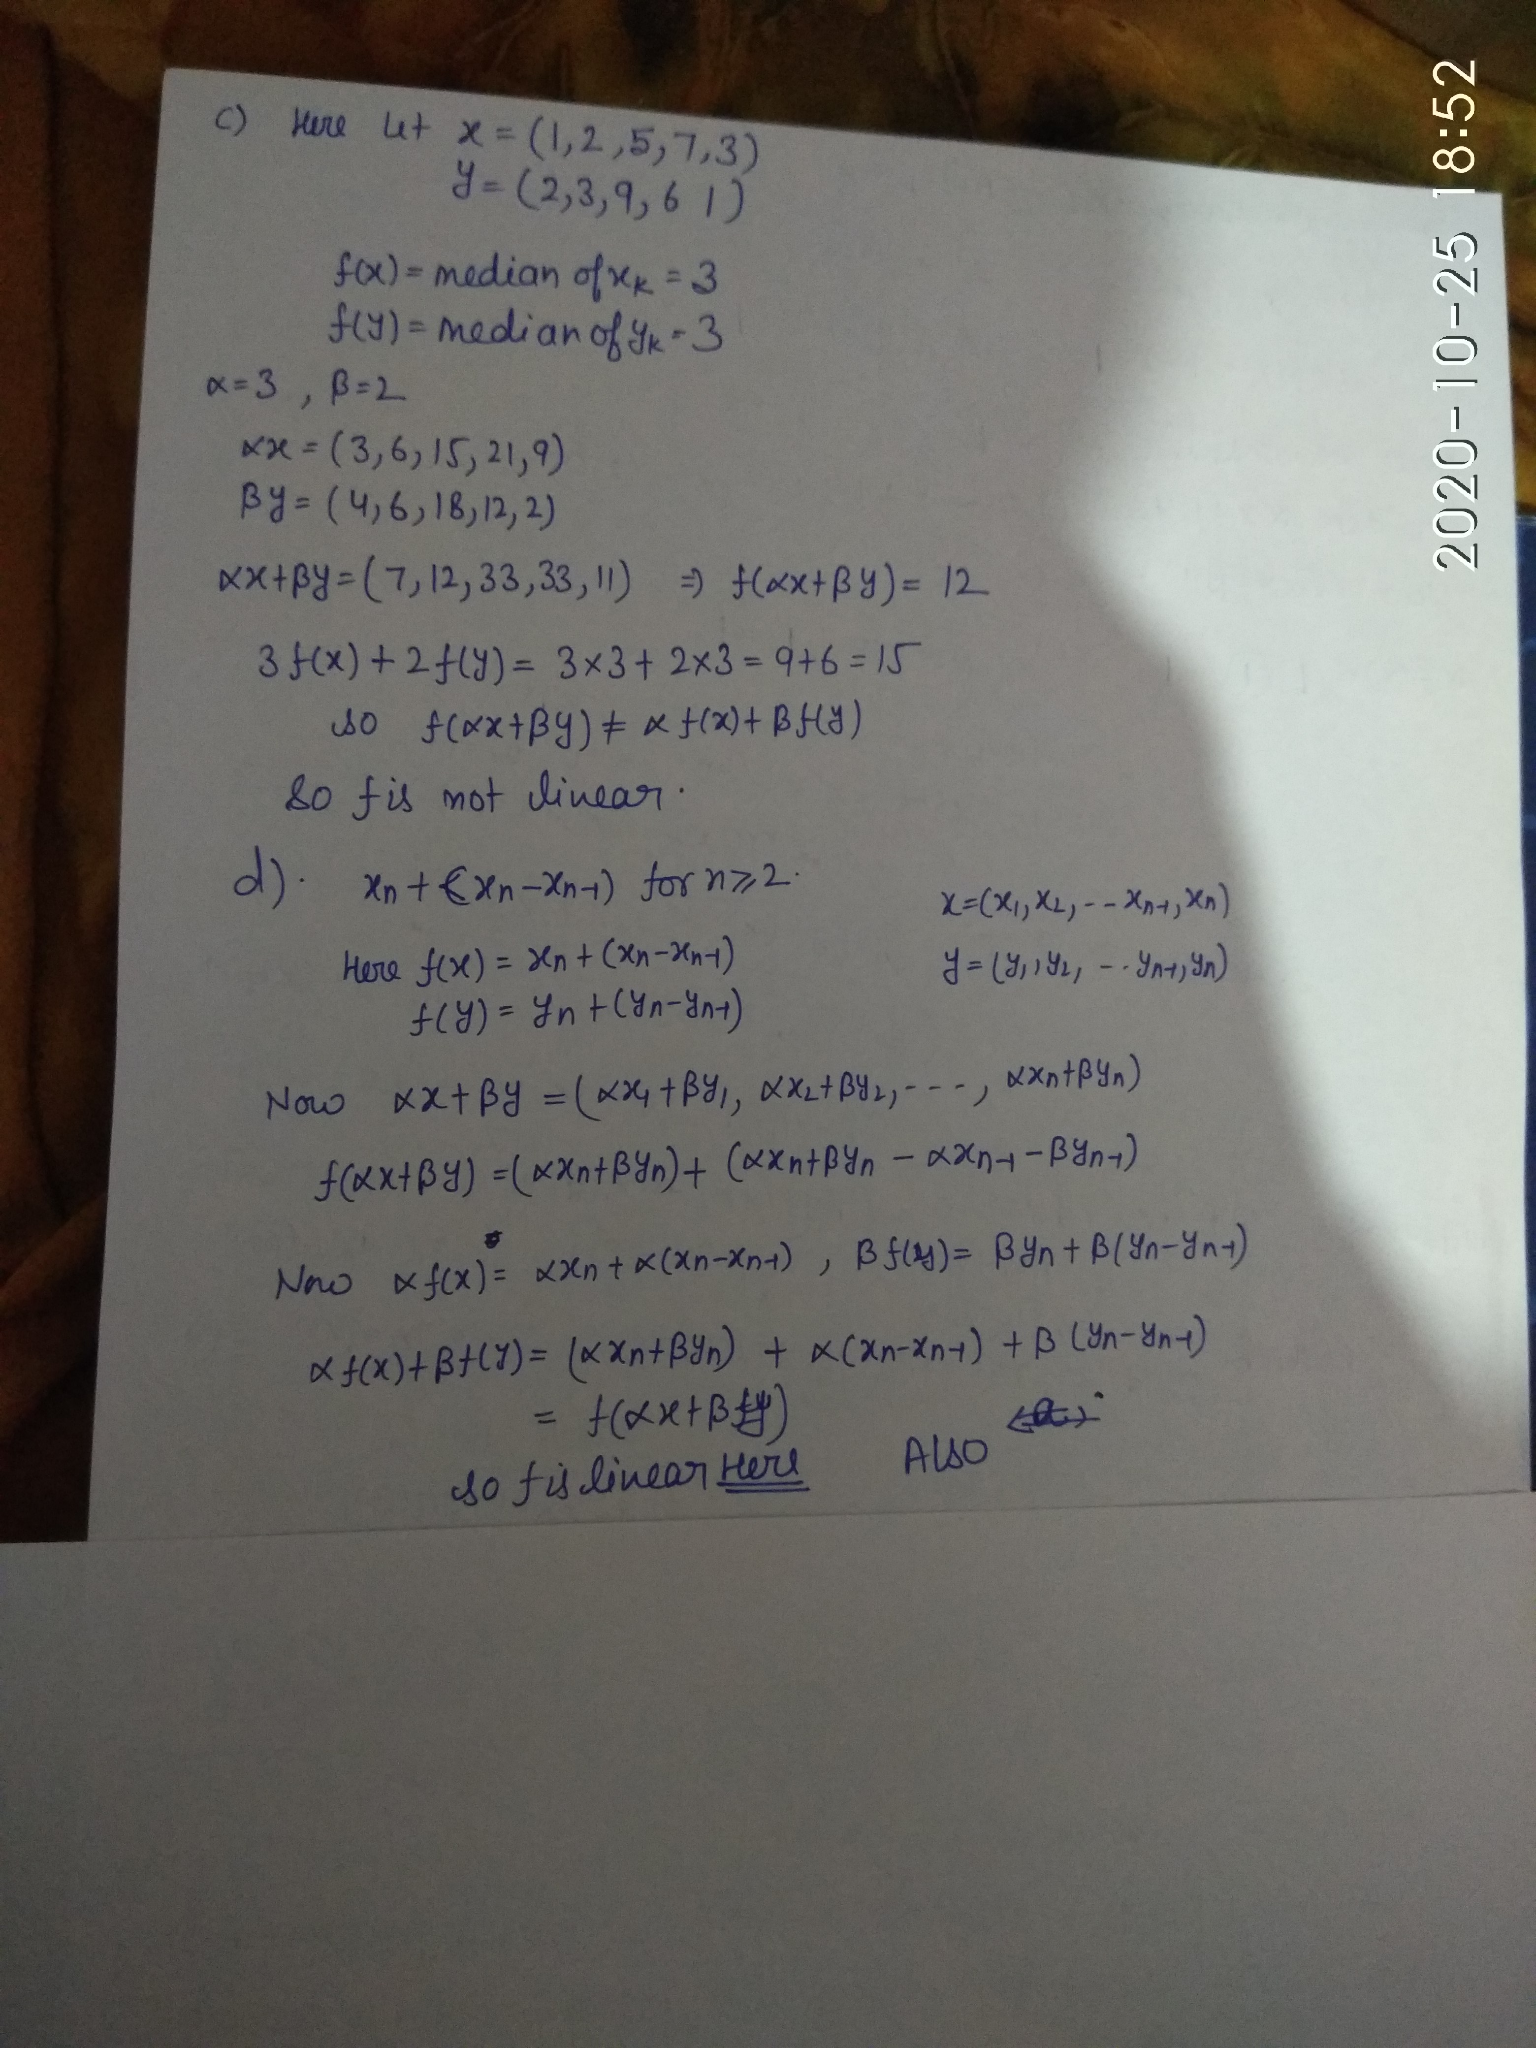 c) Here Let x = (1,2,5,7,3)
y = (2,3,9,6 1)
f(x) = median of xₖ = 3
f(y) = median of yₖ = 3
α=3 , β=2
αx = (3,6,15,21,9)
βy = (4,6,18,12,2)
αx+βy = (7,12,33,33,11) ⇒ f(αx+βy) = 12
3f(x) + 2f(y) = 3×3 + 2×3 = 9+6 = 15
so f(αx+βy) ≠ αf(x) + βf(y)
So f is not linear.
d). xₙ + (xₙ-xₙ₋₁) for n≥2.
x=(x₁,x₂,--xₙ₋₁,xₙ)
Here f(x) = xₙ + (xₙ-xₙ₋₁)
y=(y₁,y₂,--yₙ₋₁,yₙ)
f(y) = yₙ + (yₙ-yₙ₋₁)
Now αx+βy = (αx₁+βy₁, αx₂+βy₂,---, αxₙ+βyₙ)
f(αx+βy) = (αxₙ+βyₙ) + (αxₙ+βyₙ - αxₙ₋₁-βyₙ₋₁)
Now αf(x) = αxₙ + α(xₙ-xₙ₋₁) , βf(y) = βyₙ + β(yₙ-yₙ₋₁)
αf(x)+βf(y) = (αxₙ+βyₙ) + α(xₙ-xₙ₋₁) + β(yₙ-yₙ₋₁)
= f(αx+βy)
so f is linear Here Also
2020-10-25 18:52